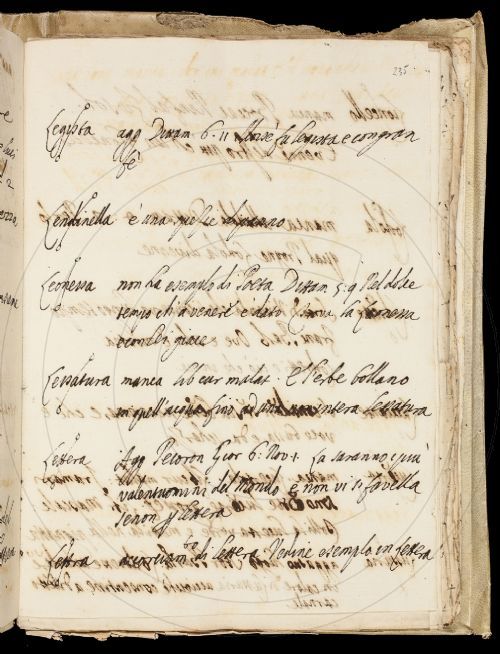 235
Legista agg Dittam. 6. 11 Moisè fu legista e con gran
fè
Lendinella è una
Leonessa non ha esemplo di Poeta Dittam. 5. 9 Nel dolce
tempo ch a venere è dato truova la Leonessa
e con lei giace
Lessatura manca lib cur malat. E l'erbe bollano
in quell'acqua fino ad una intera lessatura
Lettera Agg Pecoron Gior 6: Nov 1. fa saranno i più
valentuomini del mondo e non vi si favella
se non per lettera
Lettera di lettera Vedine esemplo in lettera